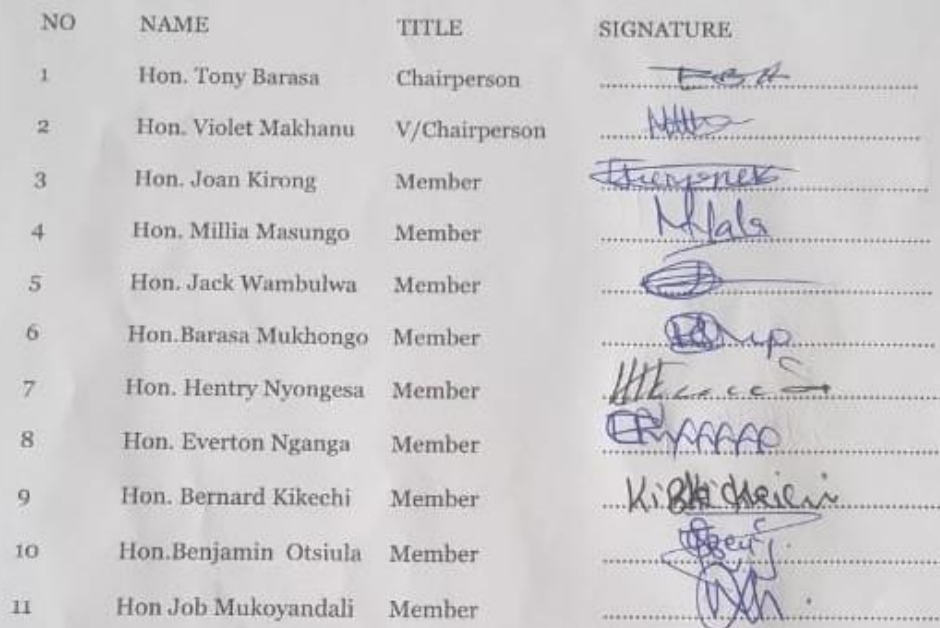 NO NAME TITLE SIGNATURE
1 Hon. Tony Barasa Chairperson
2 Hon. Violet Makhanu V/Chairperson
3 Hon. Joan Kirong Member
4 Hon. Millia Masungo Member
5 Hon. Jack Wambulwa Member
6 Hon.Barasa Mukhongo Member
7 Hon. Hentry Nyongesa Member
8 Hon. Everton Nganga Member
9 Hon. Bernard Kikechi Member
10 Hon.Benjamin Otsiula Member
11 Hon Job Mukoyandali Member